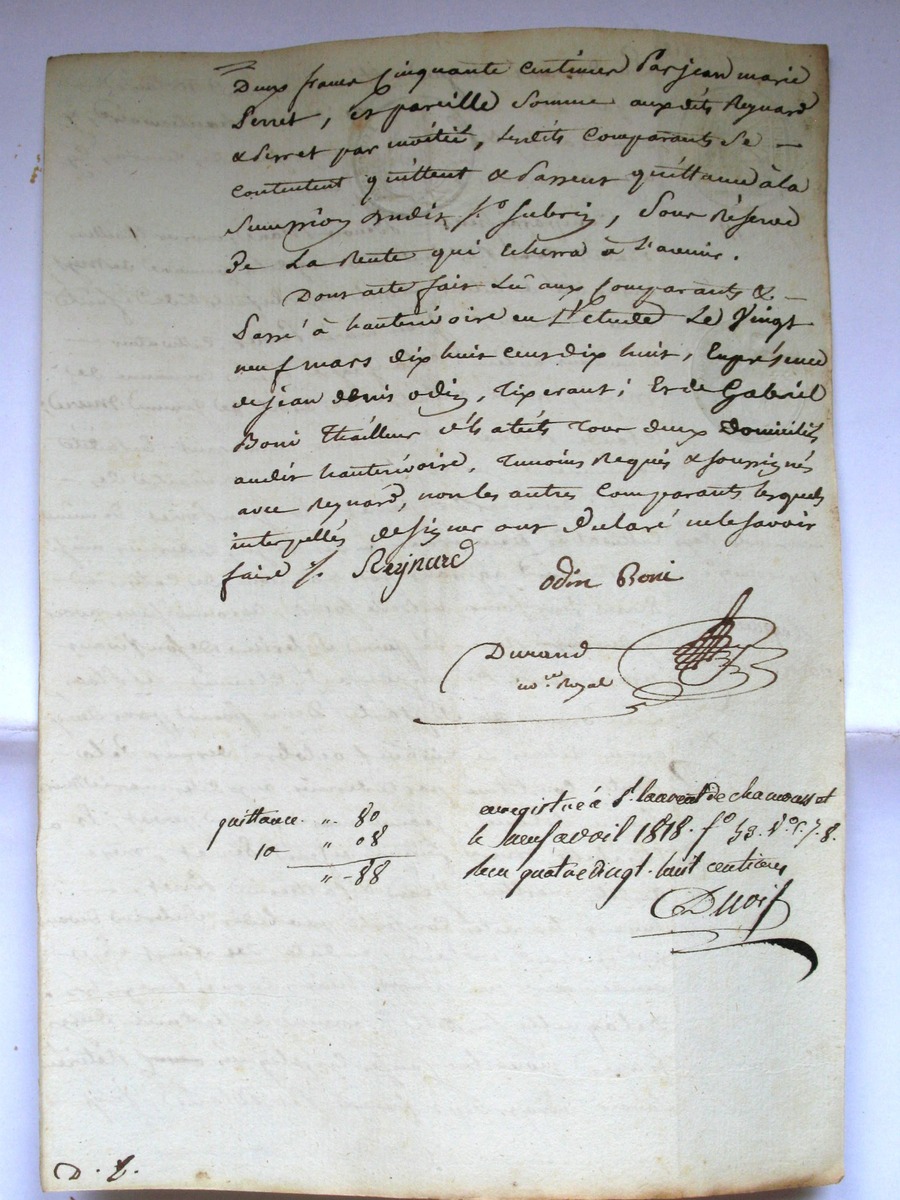 Deux francs Cinquante Centimes Par jean marie
Perret, et pareille Somme auxdits Reynard
& perret par moitié, Lesdits Comparants Se —
contentent quittent & Passent quittance à la
Succession dudit Sr. Subrin, Sous Réserve
De La Rente qui Echerra à L'avenir.
Dont acte fait Lû aux Comparants & —
Passé à hauterivoire en L'étude Le Vingt
neuf mars dix huit Cent dix huit, En présence
de jean denis odin, Tixerant; Et de Gabriel
Boni thailleur d'habits Tous deux Domiciliés
audit hauterivoire, Temoins Requis & soussignés
avec Reynard, non les autres Comparants lesquels
interpellés de signer ont Déclaré ne le Savoir
faire /. Reynard
odin Boni
Durand
no.re Royal
quittance. " . 80
10 " 08
" - 88
enregistré à St. laurent de chamousset
le neuf avril 1818. fo 53. Vo C. 7. 8.
Recu quatre Vingt. huit centimes
D. L.